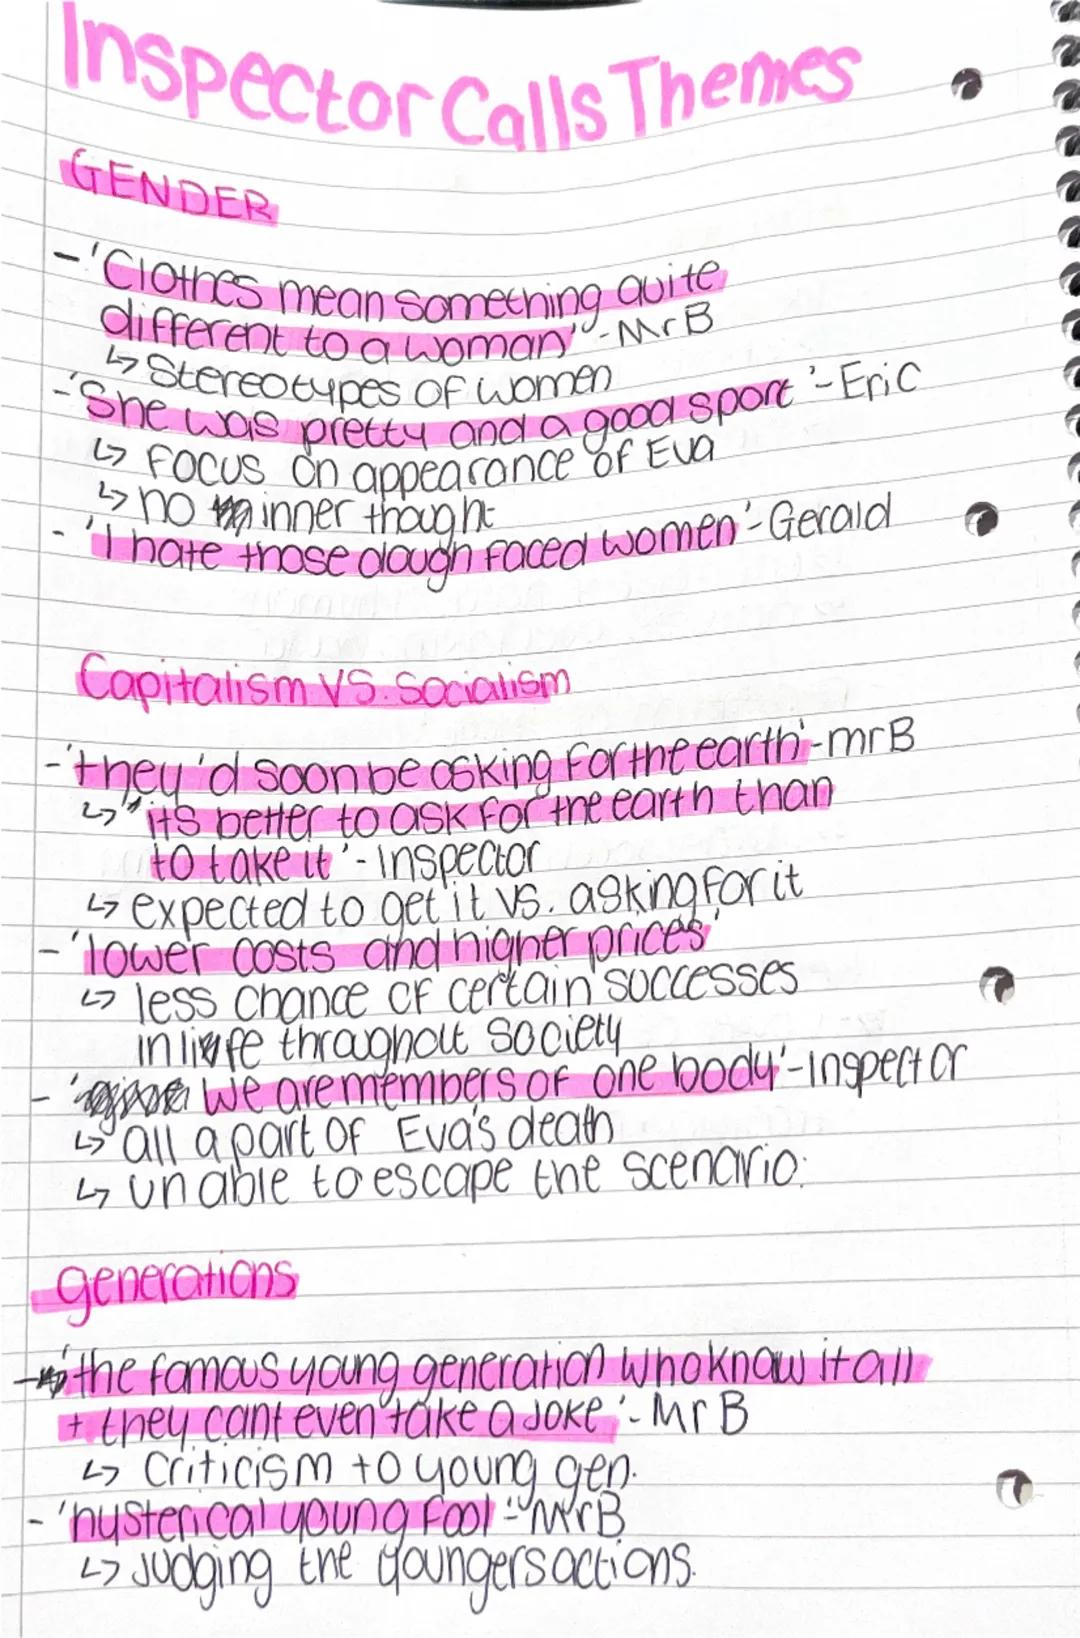 Inspector Calls Themes
GENDER
- 'Clothes mean something quite
different to a woman' - Mr B
↳ Stereotypes of women
- 'She was pretty and a good sport' - Eric
↳ FOCUS on appearance of Eva
↳ no inner thought
- 'I hate those dough faced women' - Gerald
Capitalism VS. Socialism
- 'they'd soon be asking for the earth' - mr B
↳ "its better to ask for the earth than
to take it' - Inspector
↳ expected to get it vs. asking for it
- 'lower costs and higher prices'
↳ less chance of certain successes
in life throughout society
- 'We are members of one body' - Inspector
↳ all a part of Eva's death
↳ unable to escape the scenario.
generations
- 'the famous young generation who know it all
+ they cant even take a joke' - Mr B
↳ Criticism to young gen.
- 'hysterical young fool' - Mr B
↳ Judging the youngers actions.